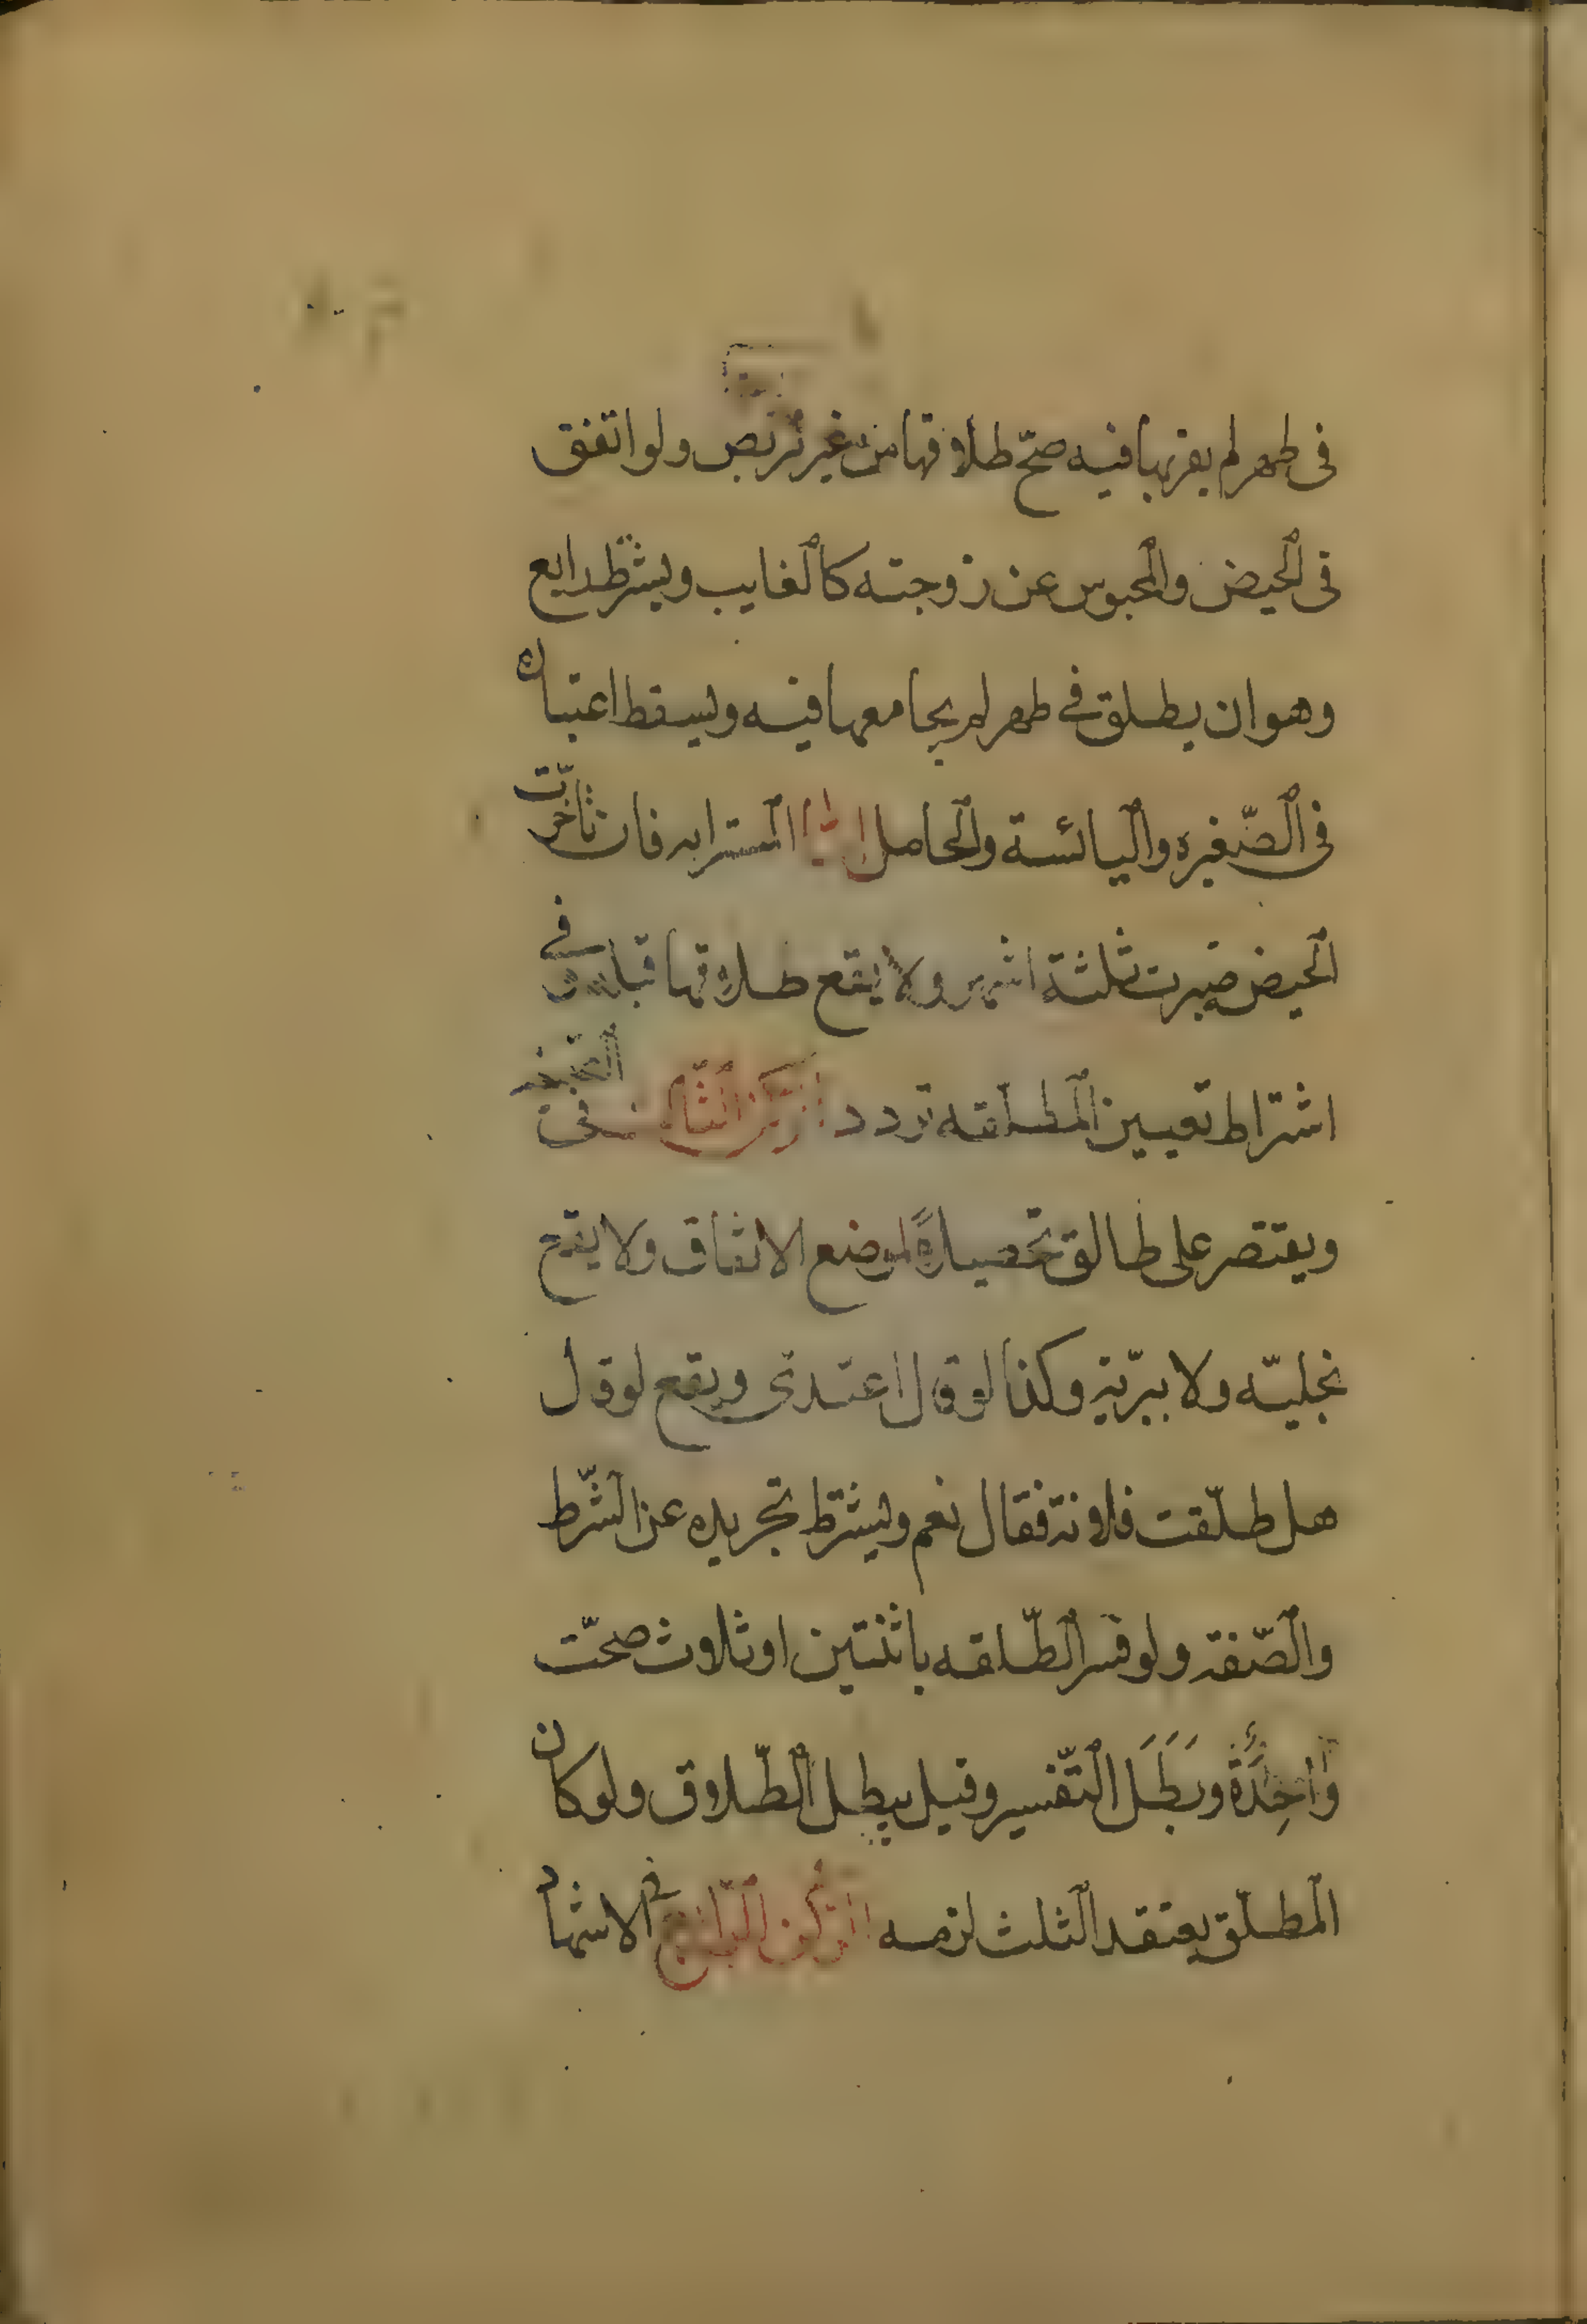 فى طهر لم يقربها فيه صحّ طلاقها من غير تربص ولو اتفق
فى الحيض والمحبوس عن زوجته كالغايب ويشترط رابع
وهو ان يطلق فى طهر لم يجامعها فيه ويسقط اعتباره
فى الصّغيره واليائسة والحامل امّا المسترابه فان تأخّرت
الحيض صبرت ثلثة اشهر ولا يقع طلاقها قبله وفى
اشتراط تعيين المطلقه تردد الركن الثالث فى الصيغة
ويقتصر على طالق تحصيلاً لموضع الاتفاق ولا يقع
بخليّه ولا ببريّة وكذا لو قال اعتدى ويقع لو قال
هل طلّقت فلانة فقال نعم ويشترط تجريده عن الشّرط
والصّفة ولو فسر الطّلقه باثنتين او ثلاث صحّت
وَاحِدَةٌ وبَطَلَ التّفسير وقيل يبطل الطّلاق ولو كان
المطلّق يعتقد الثلث لزمه الرُكن الرّابع فى الاشهاد